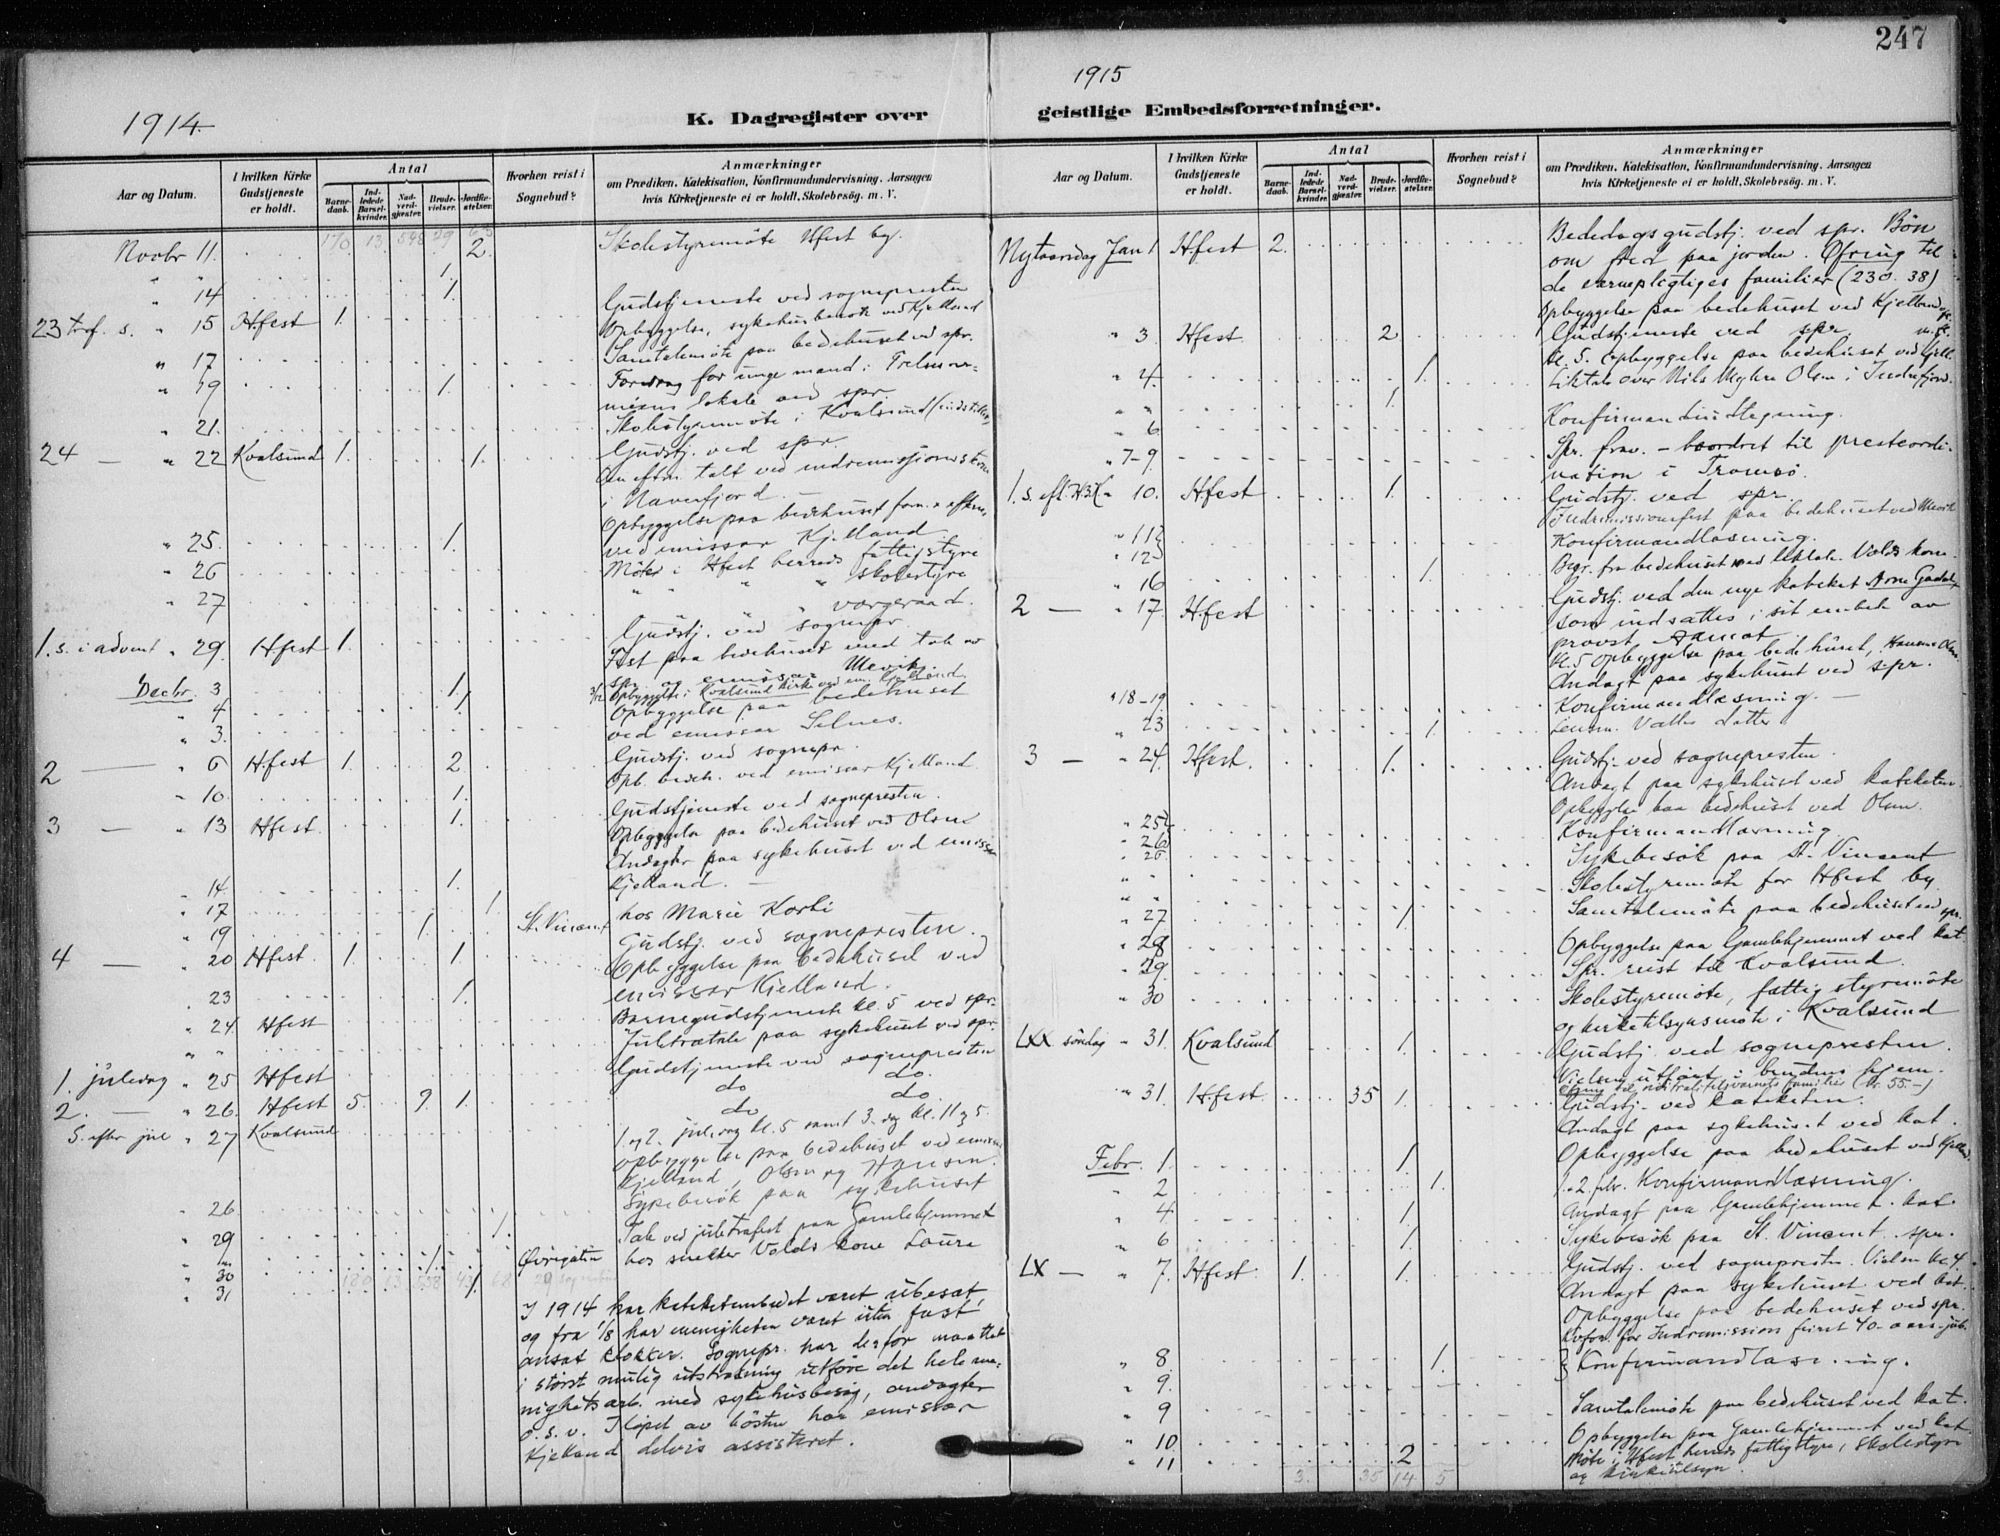 247
1914.
K. Dagregister over
Aar og Datum.
I hvilken Kirke Gudstjeneste er holdt.
Antal
Barnedaab.
Indledede Barselkvinder.
Nadverdgjæster.
Brudevielser.
Jordfæstelser.
Hvorhen reist i Sognebud?
Anmærkninger
om Prædiken, Katekisation, Konfirmandundervisning, Aarsagen
hvis Kirketjeneste ei er holdt, Skolebesög. m. V.
170 13 548 29
Novbr 11. 2. Skolestyremöte Hfest by.
" " 1.
" 14 1. Gudstjeneste ved sognepresten
23 tref. s. " 15 Hfest 1. Opbyggelse, sykehusbesök ved Kjelland
" 17 Samtalemöte paa bedehuset ved spr.
" 19 1. Foredrag for unge mænd i Frelsesar-
meens lokale ved spr.
" 21. Skolestyremöte i Kvalsund
24 — " 22 Kvalsund 1. 1. Gudstj. ved spr.
i Navenfjord. —
Opbyggelse paa bedehuset form. & efterm.
" 25. 1. ved emissær Kjelland
" 26 Möte i Hfest herreds fattigstyre
" 27 " " " " skolestyre
" " værgeraad.
1. s. i advent " 29. Hfest 1. Gudstj. ved sognepr.
Fest paa bedehuset med tale av
spr. og emissær Ulevik
Decbr. 3 1. 3/12 Opbyggelse i Kvalsund kirke ved em. Kjelland
" 4 1. Opbyggelse paa bedehuset
" 3. ved emissær Selnes.
2 — " 6 Hfest 1. 2. Gudstj. ved sognepr.
Opb. bedeh. ved emissær Kjelland.
" 10. 1. Gudstjeneste ved sognepresten.
3 — " 13 Hfest. 1. Opbyggelse paa bedehuset ved Olsen
Andagter paa sykehuset ved emissær
" 14 1. Kjelland. —
" 17 1 hos Marie Korbi
" 19 1. St. Vincent
4 — " 20 Hfest. 1. 1. Gudstj. ved sognepresten.
Opbyggelse paa bedehuset ved
" 23 1. emissær Kjelland.
" 24 Hfest Barnegudstjeneste kl. 5 ved spr.
" " Juletrætale paa sykehuset ved spr.
1. juledag " 25 Hfest Gudstjeneste ved sognepresten
2. — " 26. Hfest 5. 9. 1. do do.
S. efter jul " 27 Kvalsund do do.
1. og 2. juledag kl. 5 samt 3. dag kl. 11 & 5.
opbyggelse paa bedehuset ved emissær
Kjelland, Olsen og Hansen.
" 26 Sykebesök paa sykehuset
" 29 1. Tale ved juletræfest paa Gamlehjemmet
" " 1. Øvregaten hos snekker Volds kone Laura
" 30 180 13 558 43 68 29 sognebud
" 31
I 1914 har kateketembedet været ubesat,
og fra 1/8 har menigheten været uten fast
ansat klokker. Sognepr. har derfor maattet
i störst mulig utstrækning utföre det hele me-
nighetsarb. med sykehusbesög, andagter
o. s. v. I löpet av hösten har emissær
Kjelland delvis assisteret.
1915
geistlige Embedsforretninger.
Aar og Datum.
I hvilken Kirke Gudstjeneste er holdt.
Antal
Barnedaab.
Indledede Barselkvinder.
Nadverdgjæster.
Brudevielser.
Jordfæstelser.
Hvorhen reist i Sognebud?
Anmærkninger
om Prædiken, Katekisation, Konfirmandundervisning, Aarsagen
hvis Kirketjeneste ei er holdt, Skolebesög. m. V.
Nytaarsdag Jan 1 Hfest 2. Bededagsgudstj. ved spr. Bön
om fred paa jorden. Ofring til
de værnepligtiges familier (230.38)
Opbyggelse paa bedehuset ved Kjelland
" 3. Hfest 2. Gudstjeneste ved spr.
Kl. 5. Opbyggelse paa bedehuset ved Kjell.
" 4. 1. Liktale over Nils Olsen i Indrefjord.
" " 1.
" 6 Konfirmandindtegning.
" 7-9. Spr. frav. – beordret til presteordi-
nation i Tromsö.
1. s. eft. H3K " 10. Hfest 1. Gudstj. ved spr.
Indremissionsfest paa bedehuset ved Ulevik
" 11 & " 12 Konfirmandlæsning.
" 16 1. Begr. fra bedehuset med liktale. Volds kone.
2 — " 17. Hfest Gudstj. ved den nye kateket
som indsattes i sit embede av
provst Aamot.
Kl. 5 Opbyggelse paa bedehuset,
Andagt paa sykehuset ved spr.
" 18-19 Konfirmandlæsning. —
" 23 1. datter
3 — " 24. Hfest. 1. Gudstj. ved sognepresten.
Andagt paa sykehuset ved kateketen.
Opbyggelse paa bedehuset ved Olsen.
" 25 & " 26 Konfirmandlæsning.
" 26. Sykebesök paa St. Vincent
" " Skolestyremöte for Hfest by.
" 27 1. Samtalemöte paa bedehuset ved spr.
" 28 Opbyggelse paa Gamlehjemmet ved kat.
" 29. Spr. reist til Kvalsund.
" 30 Skolestyremöte, fattigstyremöte
og kirketilsynsmöte i Kvalsund
LXX söndag " 31. Kvalsund 1. Gudstj. ved sognepresten.
Vielsen utfört i brudens hjem.
Ofring til nöitralitetsvernets familier (kr. 55.–)
" 31. Hfest. 35 1. Gudstj. ved kateketen.
Andagt paa sykehuset ved kat.
Opbyggelse paa bedehuset ved Kjelland.
Febr. 1. 1.
" 2 1. 1. & 2. febr. Konfirmandlæsning.
" 4. 1. Andagt paa Gamlehjemmet. kat.
" 6 1. Sykebesök paa St. Vincent. spr.
LX — " 7. Hfest. 1. 1. Gudstj. ved sognepresten. Vielsen kl. 4.
Andagt paa sykehuset ved kat.
Opbyggelse paa bedehuset ved spr.
for Indremission feiret 40-aars-jub.
" 8 1. } Konfirmandlæsning.
" 9.
" 9 Samtalemöte paa bedehuset ved kat.
" 10. Opbyggelse paa Gamlehjemmet ved kat
" 11 2 Möte i Hfest herreds fattigstyre, skolestyre
og kirketilsyn.
3. 35 14 5